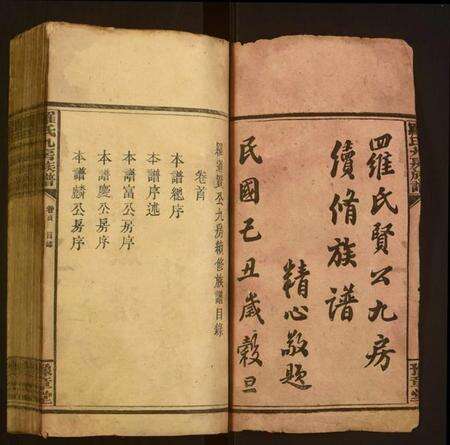 羅氏賢公九房
續脩族譜
精心敬題
民國己丑歲穀旦
羅道賢公九房續修族譜目錄
卷首
本譜總序
本譜序述
本譜富公房序
本譜慶公房序
本譜麟公房序
羅氏九房族譜
卷首 目錄
豫章堂
豫章堂